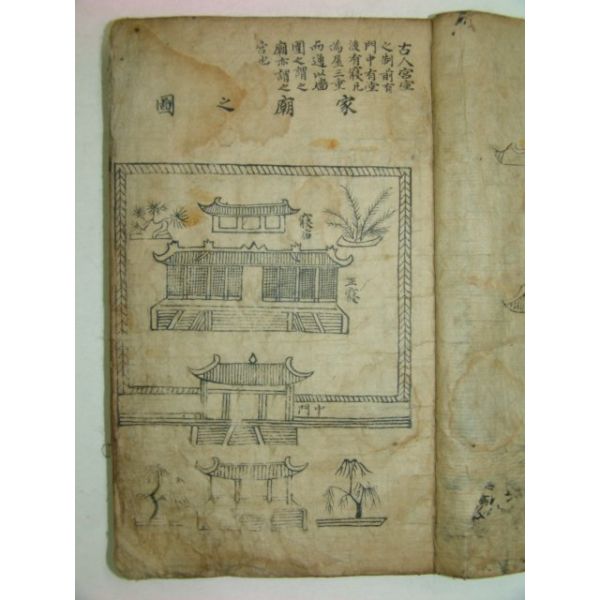 古人宮室
之制前有
門中有堂
後有寢凡
為屋三重
而通以墻
圍之謂之
廟亦謂之
宮也
家廟之圖
寢后
正寢
中門